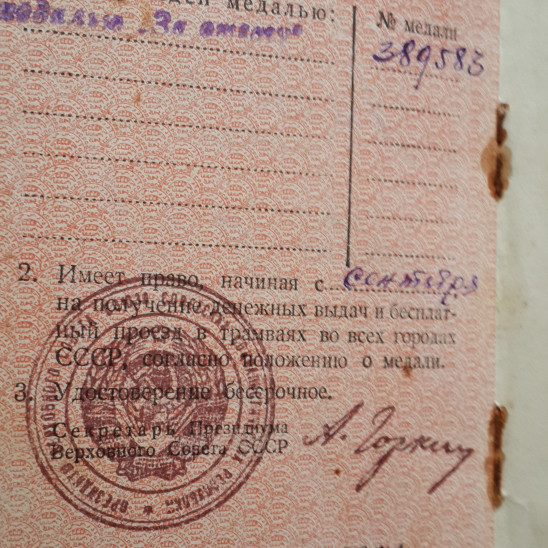 медалью:
№ медали
медалью „За отвагу"
389583
2. Имеет право, начиная с сентября
на получение денежных выдач и бесплат-
ный проезд в трамваях во всех городах
СССР, согласно положению о медали.
3. Удостоверение бессрочное.
Секретарь Президиума
Верховного Совета СССР
А. Горкин